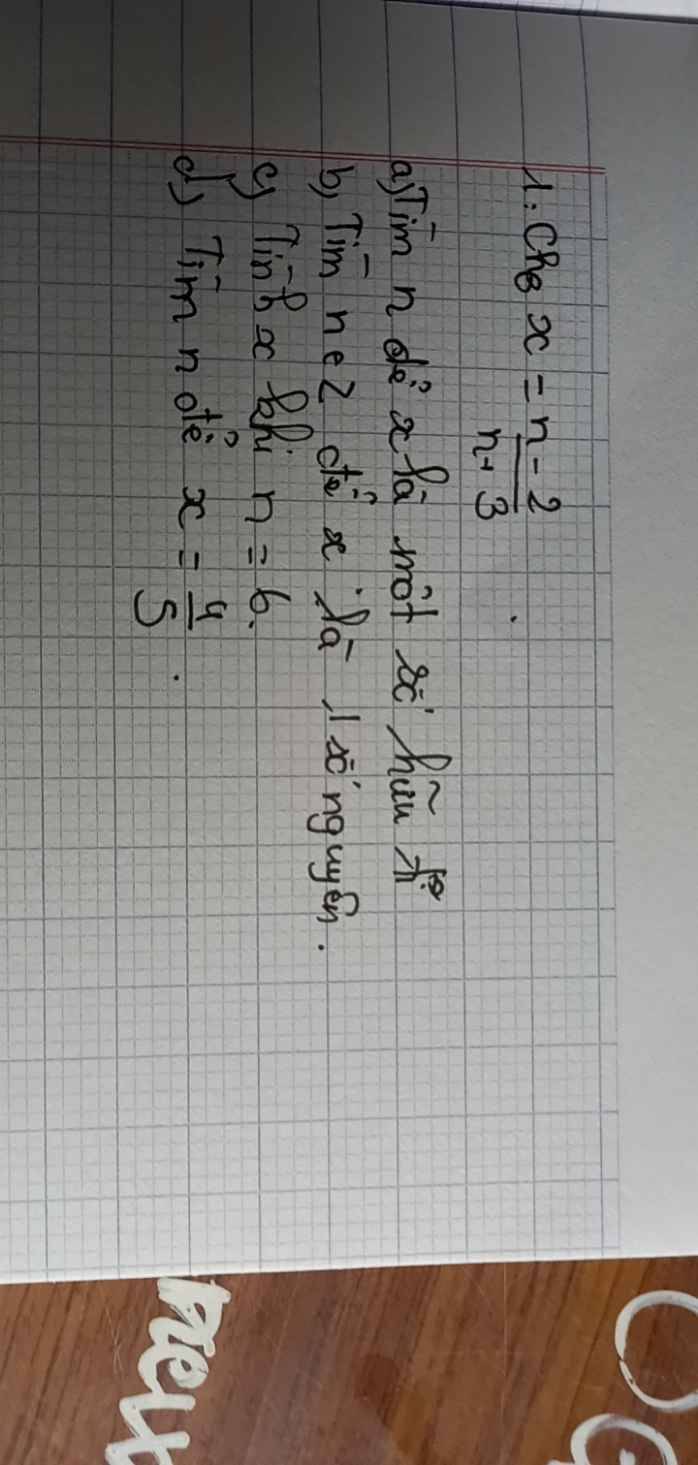 1: Cho x = n - 2 / n + 3
a) Tìm n để x là một số hữu tỉ
b) Tìm n ∈ Z để x là 1 số nguyên.
c) Tính x khi n = 6.
d) Tìm n để x = 4 / 5.